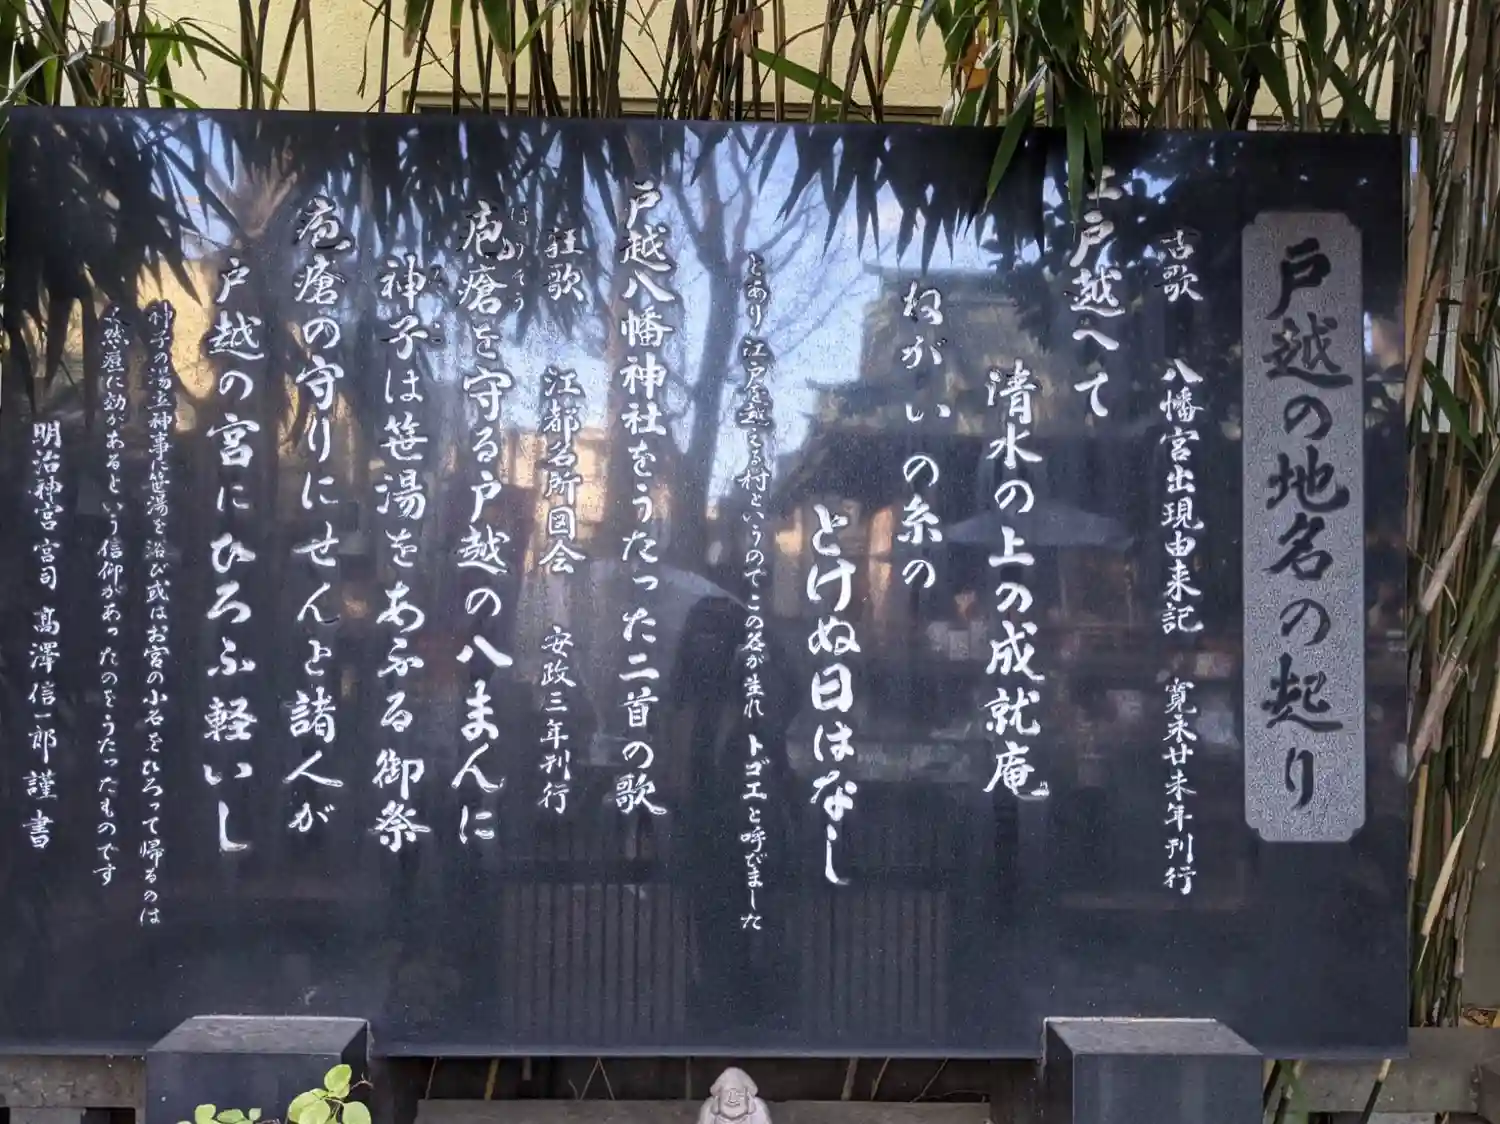 戸越の地名の起り
古歌 八幡宮出現由来記 寛永廿未年刊行
江戸越へて
清水の上の成就庵
ねがいの糸の
とけぬ日はなし
とあり江戸を越える村というのでこの名が生れトゴエと呼びました
戸越八幡神社をうたった二首の歌
狂歌 江都名所図会 安政三年刊行
疱瘡を守る戸越の八まんに
神子は笹湯をあふる御祭
疱瘡の守りにせんと諸人が
戸越の宮にひろふ軽いし
神子の湯立神事に笹湯を浴び或はお宮の小石をひろって帰るのは
天然痘に効があるという信仰があったのをうたったものです
明治神宮宮司 高澤信一郎 謹書